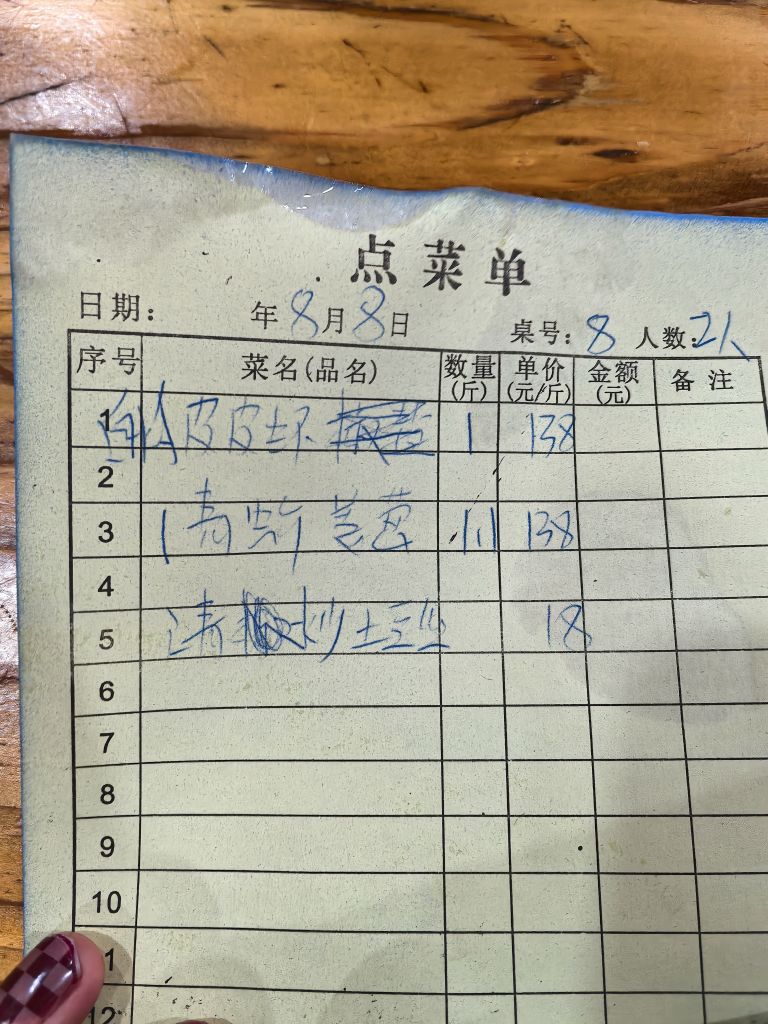 点菜单
日期: 年8月8日 桌号:8 人数:2人
序号 菜名(品名) 数量(斤) 单价(元/斤) 金额(元) 备注
1 皮皮 1 138
2
3 138
4
5 清 炒土豆丝 18
6
7
8
9
10
1
12